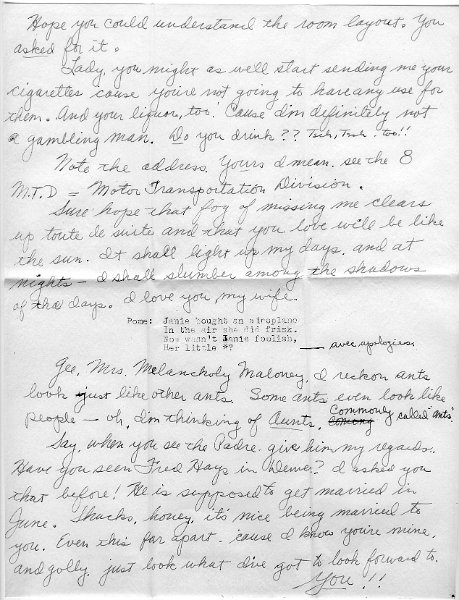 Hope you could understand the room layout. You
asked for it.
Lady, you might as well start sending me your
cigarettes cause you're not going to have any use for
them. And your liquor, too. Cause I'm definitely not
a gambling man. Do you drink?? Tsch, Tsch. too!!
Note the address. Yours I mean. see the 8
M.T.D = Motor Transportation Division.
Sure hope that fog of missing me clears
up toute de suite and that you love will be like
the sun. It shall light up my days, and at
nights - I shall slumber among the shadows
of the days. I love you my wife.
Pome: Janie bought an airoplane
In the air she did frisk.
Now wasn't Janie foolish,
Her little *? — avec apologies.
Gee, Mrs. Melancholy Maloney, I reckon ants
look just like other ants. Some ants even look like
people - oh, I'm thinking of Aunts, Commonly called "ants"
Say, when you see the Padre. give him my regards.
Have you seen Fred Hays in Dewey? I asked you
that before! He is supposed to get married in
June. Shucks, honey, it's nice being married to
you. Even this far apart. cause I know you're mine,
and golly, just look what I've got to look forward to.
You!!